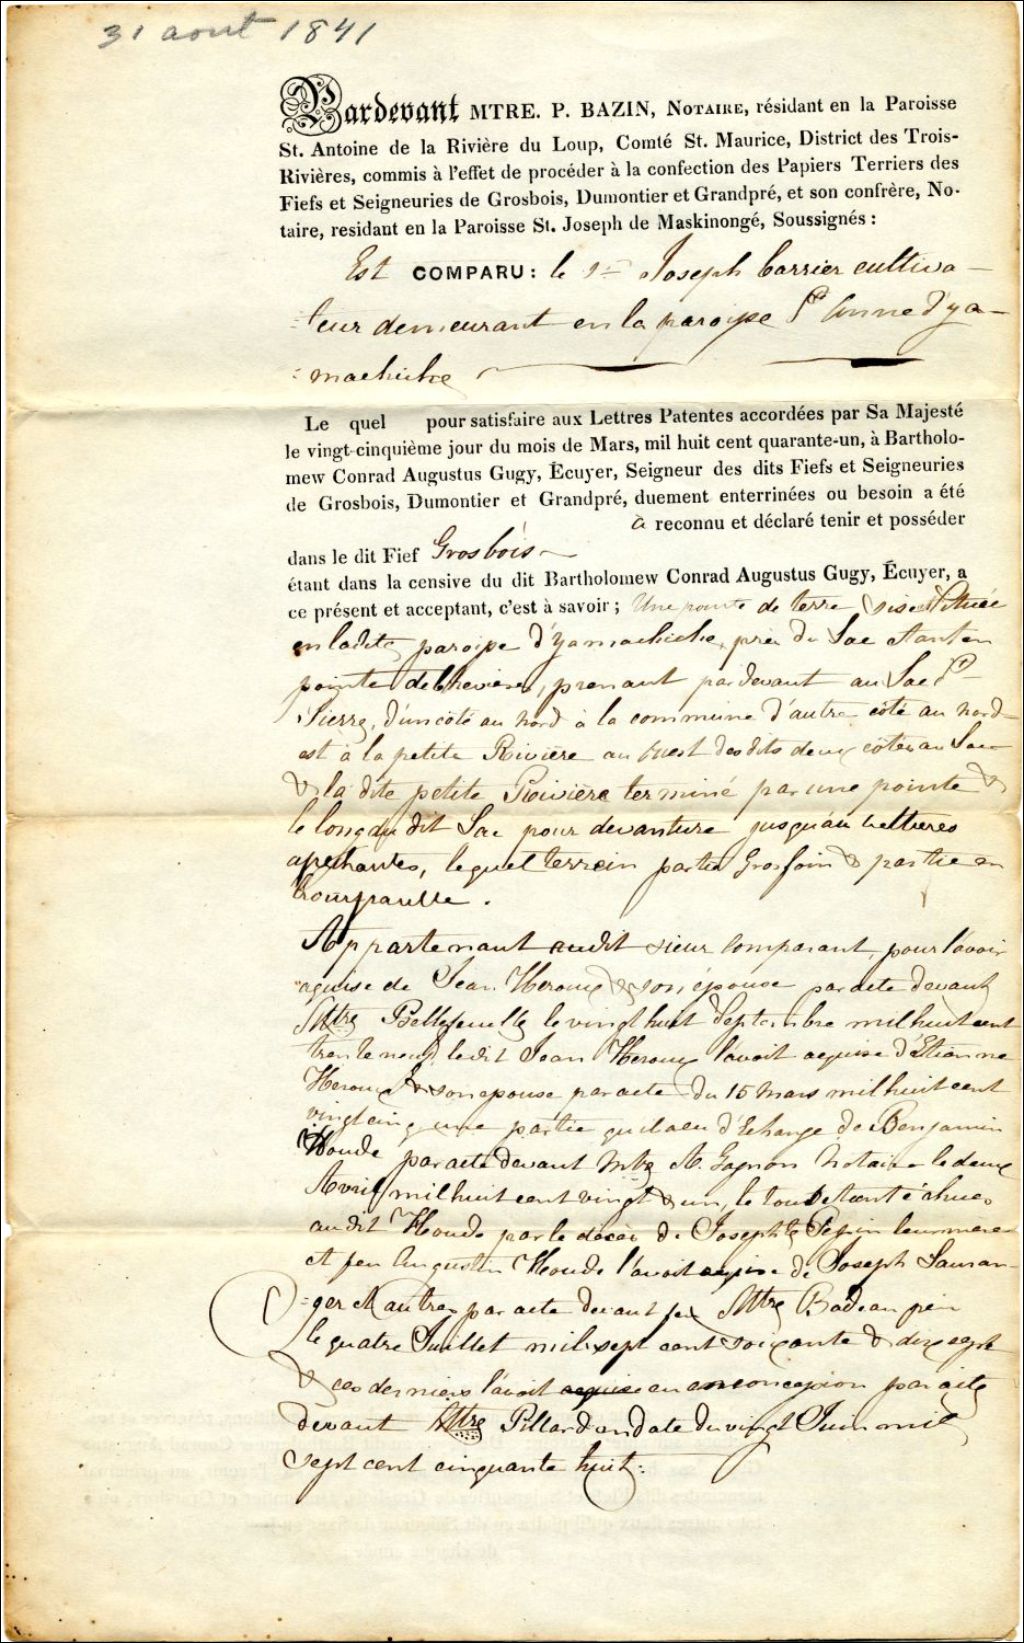 31 aout 1841
Pardevant MTRE. P. BAZIN, NOTAIRE, résidant en la Paroisse
St. Antoine de la Rivière du Loup, Comté St. Maurice, District des Trois-
Rivières, commis à l'effet de procéder à la confection des Papiers Terriers des
Fiefs et Seigneuries de Grosbois, Dumontier et Grandpré, et son confrère, No-
taire, residant en la Paroisse St. Joseph de Maskinongé, Soussignés :
Est COMPARU: le Sr Joseph Carrier cultiva-
-teur demeurant en la paroisse Ste Anne d'ya-
-machiche
Le quel pour satisfaire aux Lettres Patentes accordées par Sa Majesté
le vingt-cinquième jour du mois de Mars, mil huit cent quarante-un, à Bartholo-
mew Conrad Augustus Gugy, Écuyer, Seigneur des dits Fiefs et Seigneuries
de Grosbois, Dumontier et Grandpré, duement enterrinées ou besoin a été
à reconnu et déclaré tenir et posséder
dans le dit Fief Grosbois
étant dans la censive du dit Bartholomew Conrad Augustus Gugy, Écuyer, a
ce présent et acceptant, c'est à savoir ; Une pointe de terre sise & située
en ladite paroisse d'yamachiche, près du Lac étant en
pointe de , prenant pardevant au Lac St
Pierre, d'un côté au nord à la commune d'autre côté au nord-
est à la petite Rivière au ouest des dits deux côtés au Lac
& la dite petite Rivière terminé par une pointe &
le long du dit Lac pour devanture jusqu'au
, lequel terrein partie Gros foin & partie en
.
Appartenant audit sieur Comparant, pour l'avoir
aquise de Jean Heroux & son épouse par acte devant
Mtre Bellefeuille le vingt huit Septembre mil huit cent
trente neuf ledit Jean Heroux l'avoit aquise d'Etienne
Heroux & son epouse par acte du 15 Mars mil huit cent
vingt cinq une partie qu'il a eu d'Echange de Benjamin
Houde par acte devant Mtre A. Gagnon Notaire le deux
Avril mil huit cent vingt & un, le tout étoent échue
audit Houde par le décès de Josephte Pepin leur mere
et feu Augustin Houde l'avoit aquise de Joseph Lauran-
-ger et autres par acte devant feu Mtre Badeau père
le quatre Juillet mil sept cent soixante & dix sept
& ces derniers l'avoit en concession par acte
devant Mtre Pillard en date du vingt Juin mil
sept cent cinquante huit.